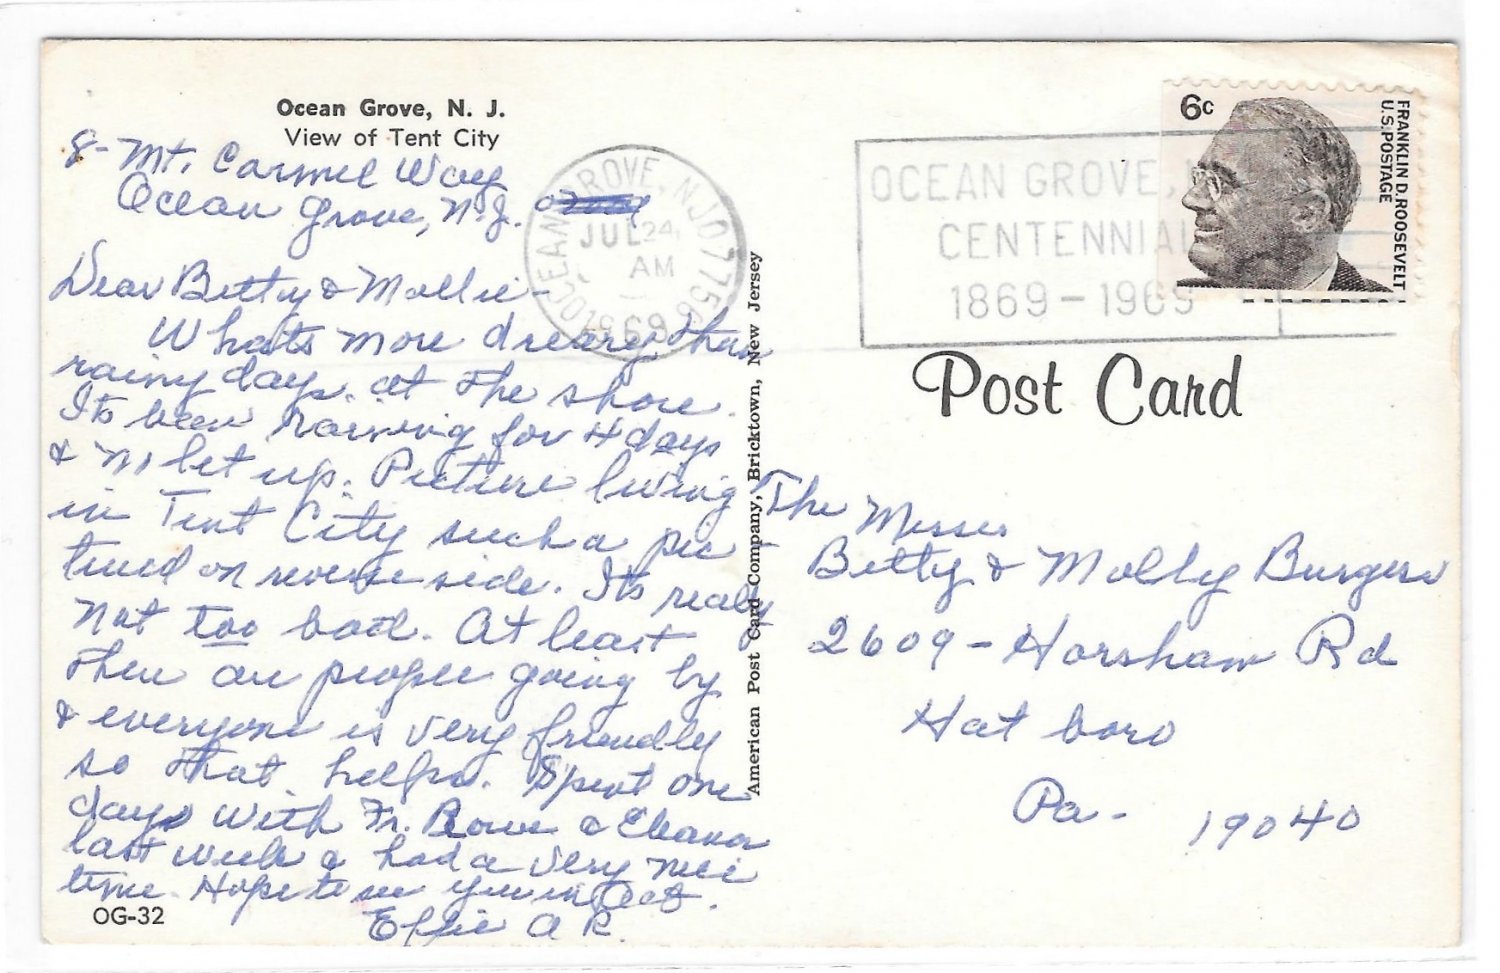 Ocean Grove, N. J.
View of Tent City
8- Mt. Carmel Way
Ocean Grove, N.J.
Dear Betty & Mollie-
Whats more dreary than
rainy days. at the shore.
Its been raining for 4 days
& no let up. Picture living
in Tent City such a pic-
tured on reverse side. Its really
not too bad. At least
there are people going by
& everyone is very friendly
so that helps. Spent one
day with Fr. Bowe & Eleanor
last week & had a very nice
time. Hope to see you in Oct.
Effie A R.
OG-32
OCEAN GROVE, N.J. 07756
JUL 24,
AM
1969
American Post Card Company, Bricktown, New Jersey
OCEAN GROVE, N
CENTENNIAL
1869-1969
6c
FRANKLIN D. ROOSEVELT
U.S. POSTAGE
Post Card
The Misses
Betty & Molly Burgess
2609 - Horsham Rd
Hatboro
Pa- 19040